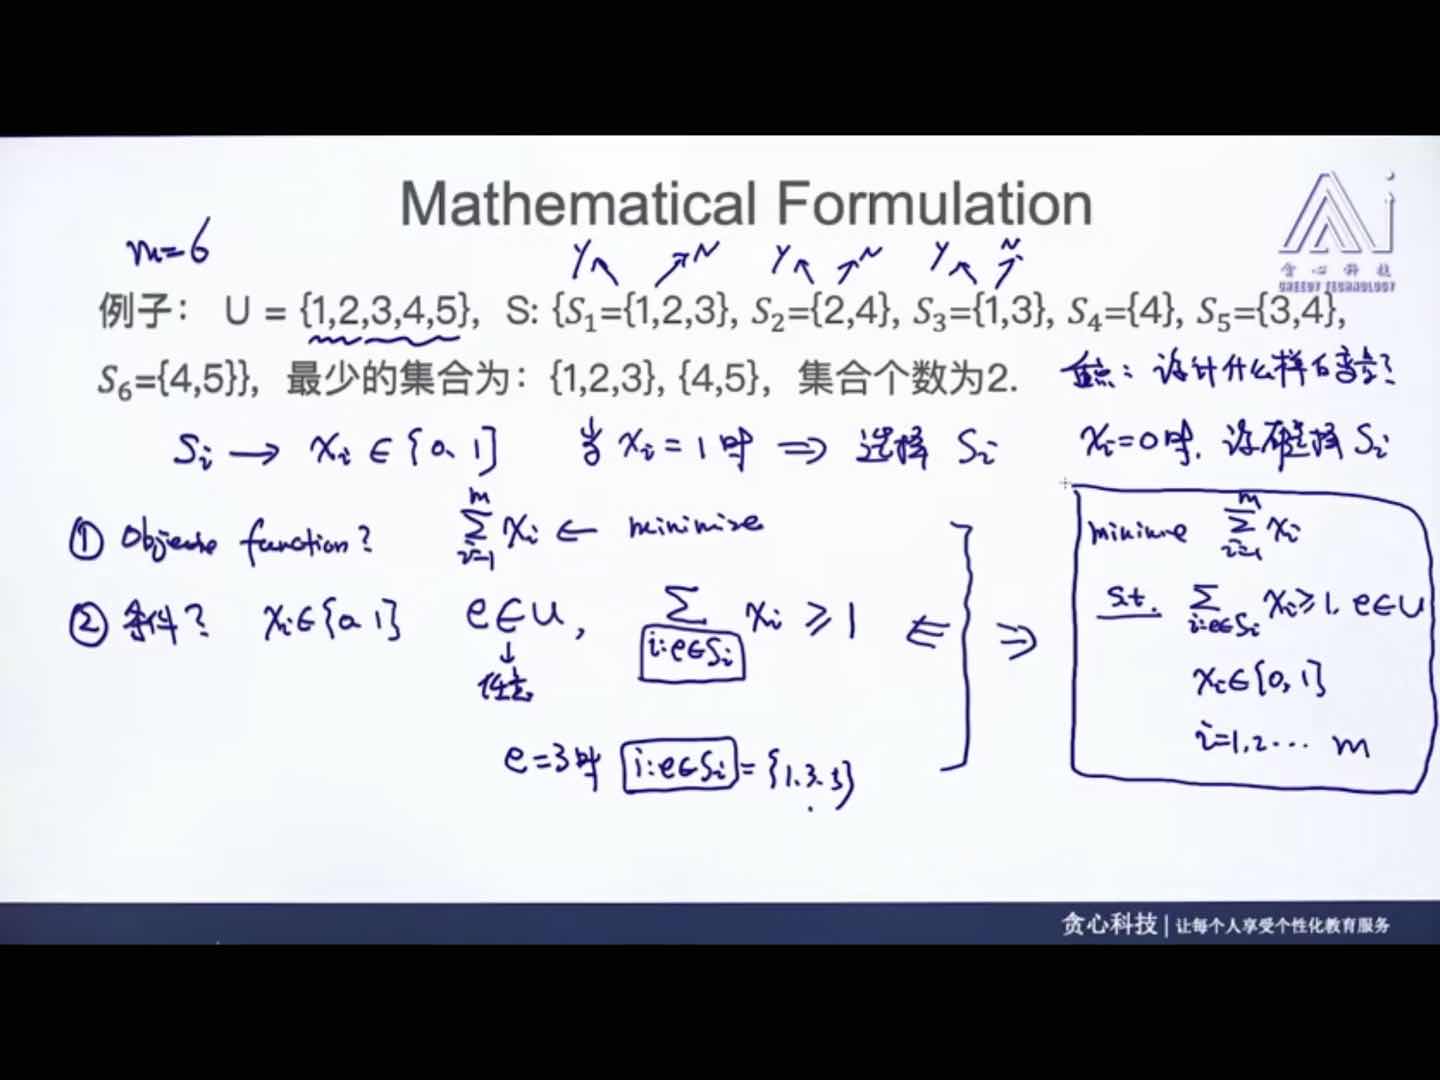 Mathematical Formulation
m=6
Y N Y N Y N
例子： U = {1,2,3,4,5}, S: {S₁={1,2,3}, S₂={2,4}, S₃={1,3}, S₄={4}, S₅={3,4},
S₆={4,5}}, 最少的集合为：{1,2,3}, {4,5}, 集合个数为2.
重点：设计什么样的变量？
Si → xi ∈ {0,1} 当 xi = 1 时 ⇒ 选择 Si xi=0时, 没有选择 Si
① Objective function? ∑_{i=1}^{m} xi ← minimize
② 条件？ xi∈{0,1} e∈U, ∑_{i:e∈Si} xi ≥ 1 ⇐
↓
任意
e=3时 i:e∈Si = {1.3.5}
⇒
minimize ∑_{i=1}^{m} xi
s.t. ∑_{i:e∈Si} xi≥1, e∈U
xi∈{0,1}
i=1,2... m
贪心科技
GREEDY TECHNOLOGY
贪心科技 | 让每个人享受个性化教育服务